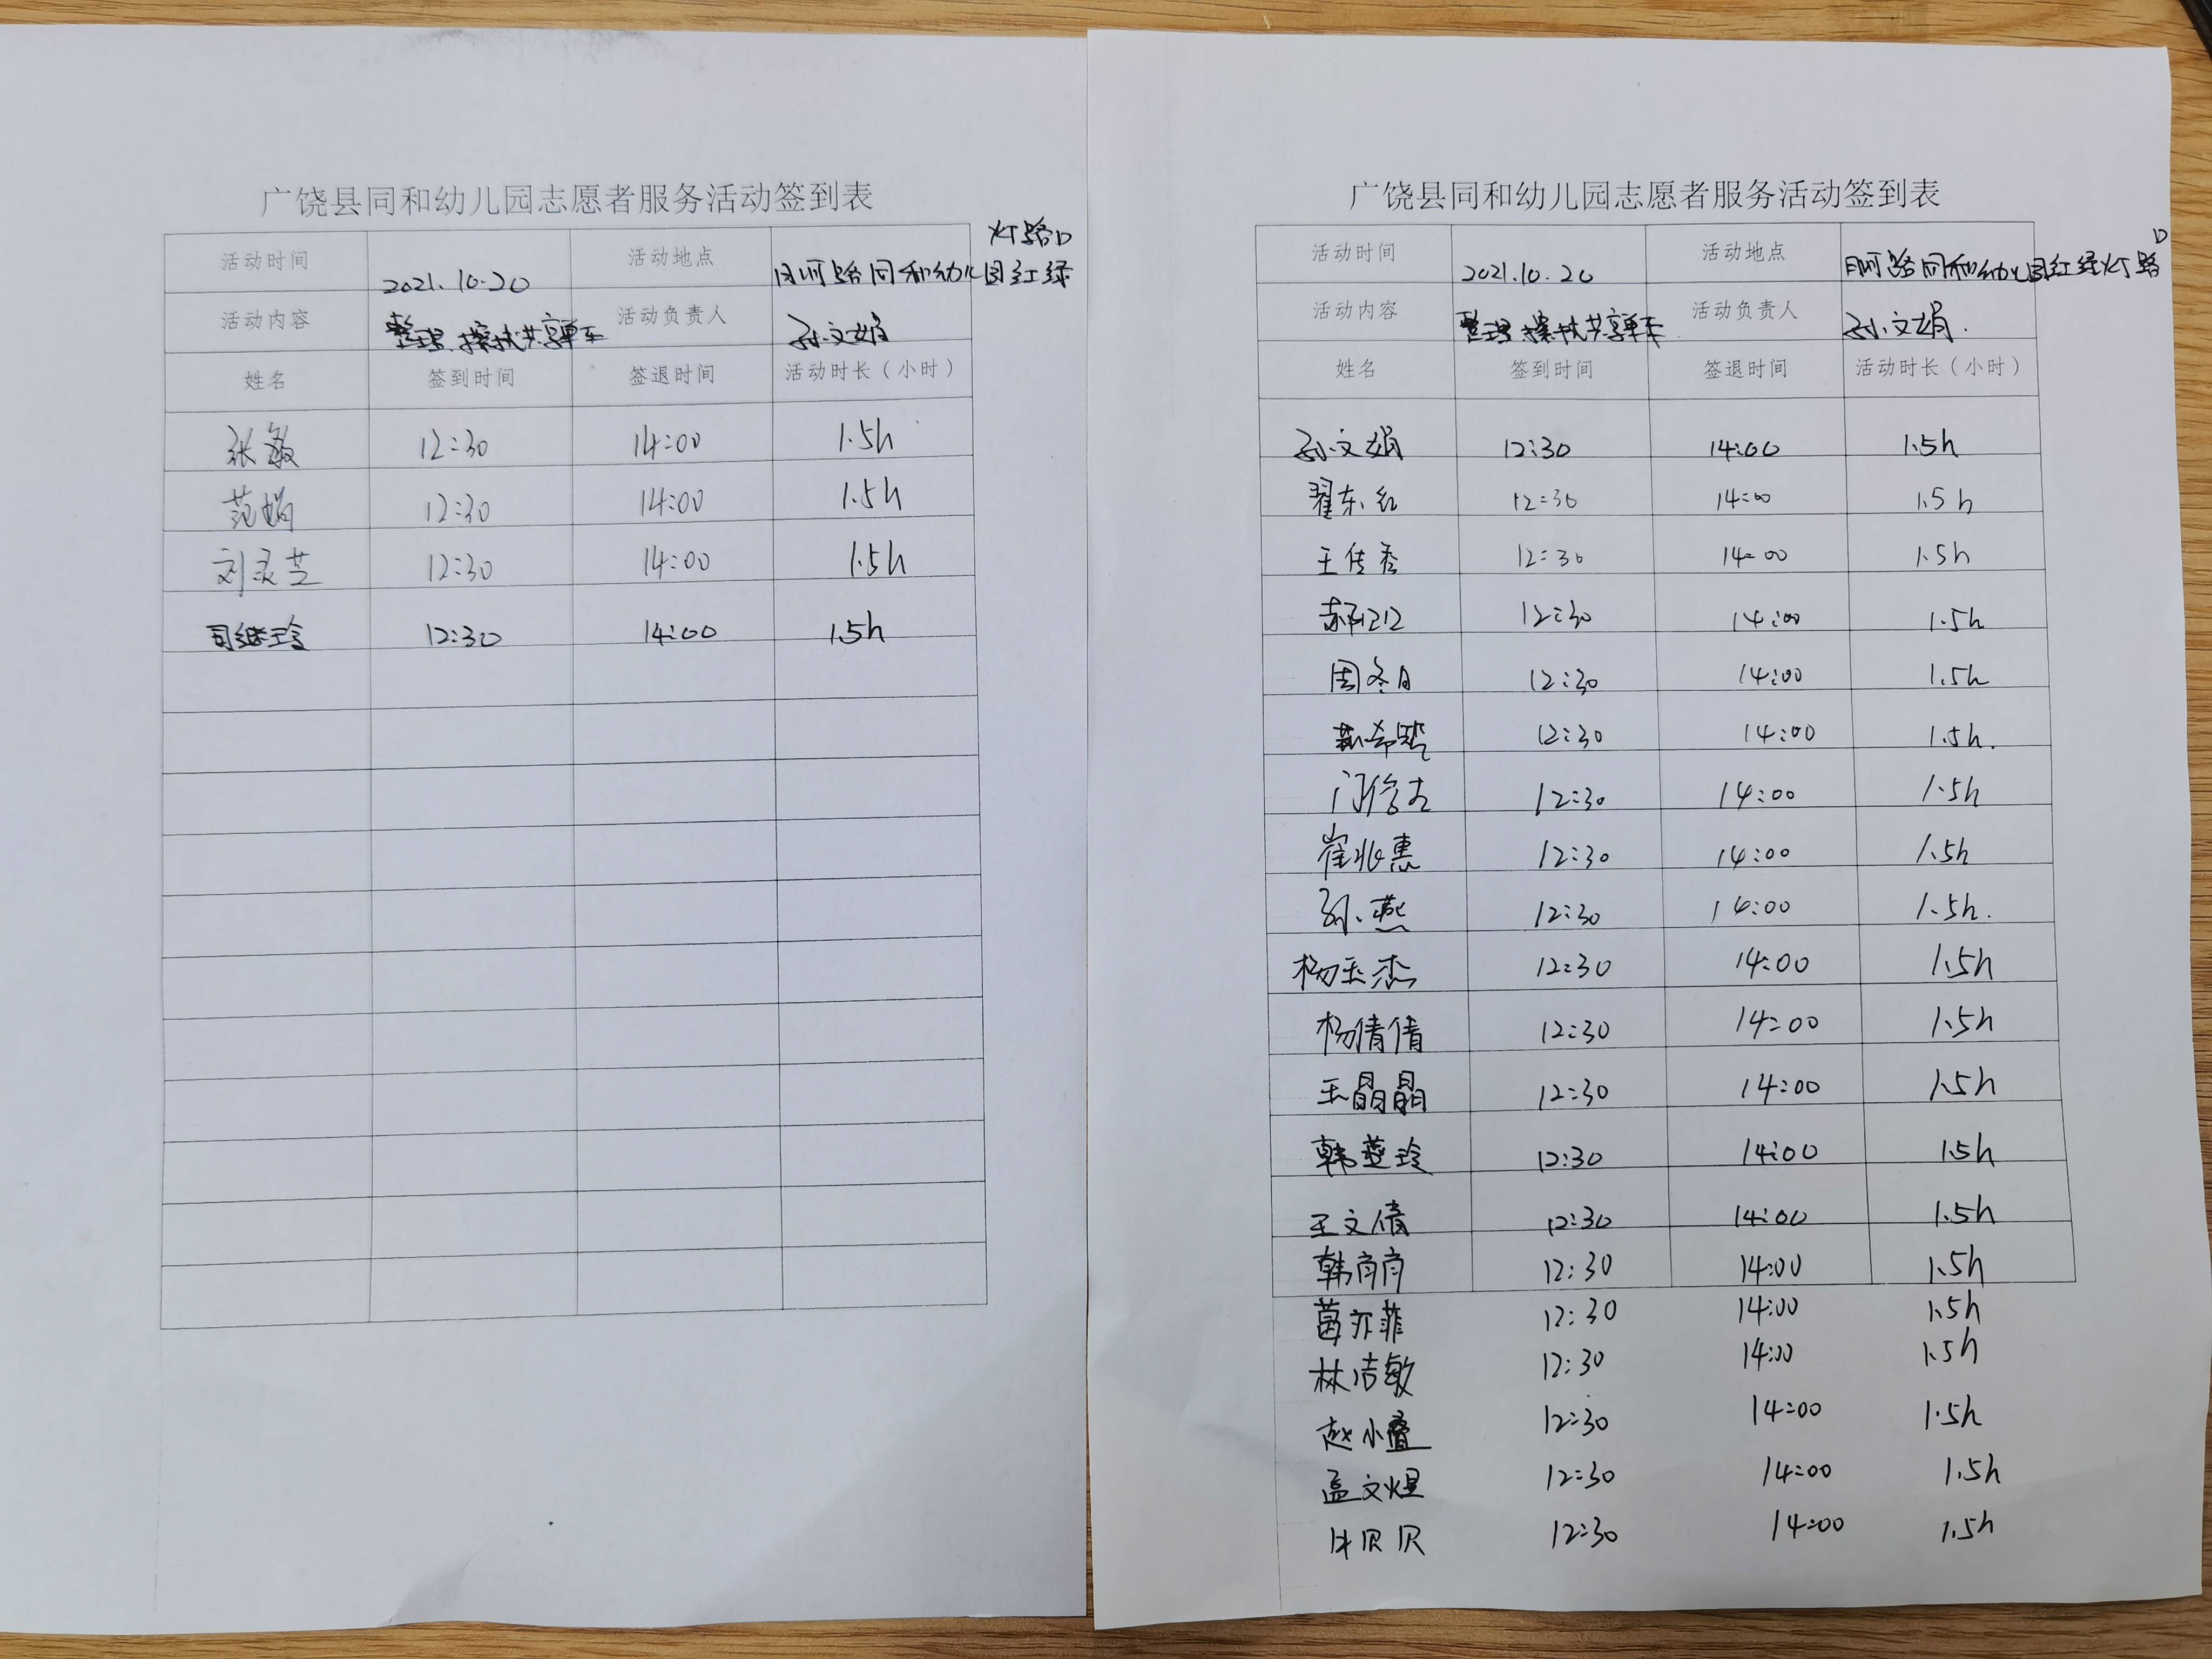 广饶县同和幼儿园志愿者服务活动签到表
活动时间 2021.10.20 活动地点 月河路同和幼儿园红绿灯路口
活动内容 整理、擦拭共享单车 活动负责人 孙文娟
姓名 签到时间 签退时间 活动时长（小时）
张敏 12:30 14:00 1.5h
范娟 12:30 14:00 1.5h
刘灵芝 12:30 14:00 1.5h
司继玲 12:30 14:00 1.5h
广饶县同和幼儿园志愿者服务活动签到表
活动时间 2021.10.20 活动地点 月河路同和幼儿园红绿灯路口
活动内容 整理、擦拭共享单车 活动负责人 孙文娟
姓名 签到时间 签退时间 活动时长（小时）
孙文娟 12:30 14:00 1.5h
翟东红 12:30 14:00 1.5h
王传香 12:30 14:00 1.5h
12:30 14:00 1.5h
周冬月 12:30 14:00 1.5h
12:30 14:00 1.5h.
12:30 14:00 1.5h
崔兆惠 12:30 14:00 1.5h
孙燕 12:30 14:00 1.5h.
杨玉杰 12:30 14:00 1.5h
杨倩倩 12:30 14:00 1.5h
王晶晶 12:30 14:00 1.5h
韩燕玲 12:30 14:00 1.5h
王文倩 12:30 14:00 1.5h
韩肖肖 12:30 14:00 1.5h
葛亦菲 12:30 14:00 1.5h
林洁敏 12:30 14:00 1.5h
赵小叠 12:30 14:00 1.5h
孟文煜 12:30 14:00 1.5h
贝贝 12:30 14:00 1.5h